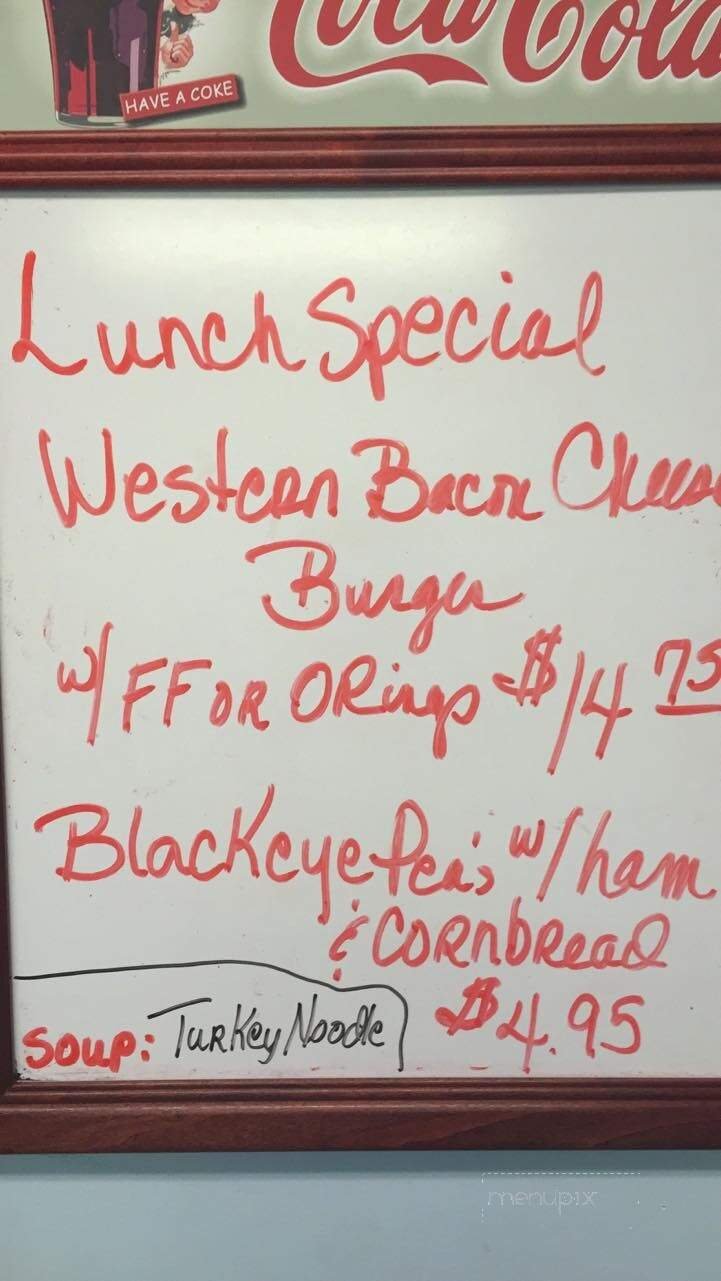 Coca Cola
HAVE A COKE
Lunch Special
Western Bacon Cheese
Burger
w/ FF OR O Rings $14 75
Blackeye Pea's w/ ham
& CORNBREAD
$4.95
SOUP: Turkey Noodle
menupix